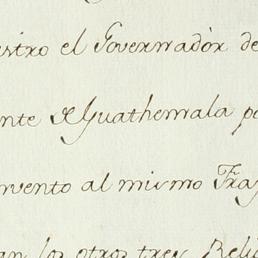 estro el Governadòr de
nte de Guathemala po
nvento al mismo Fray
an los otros tres Reli